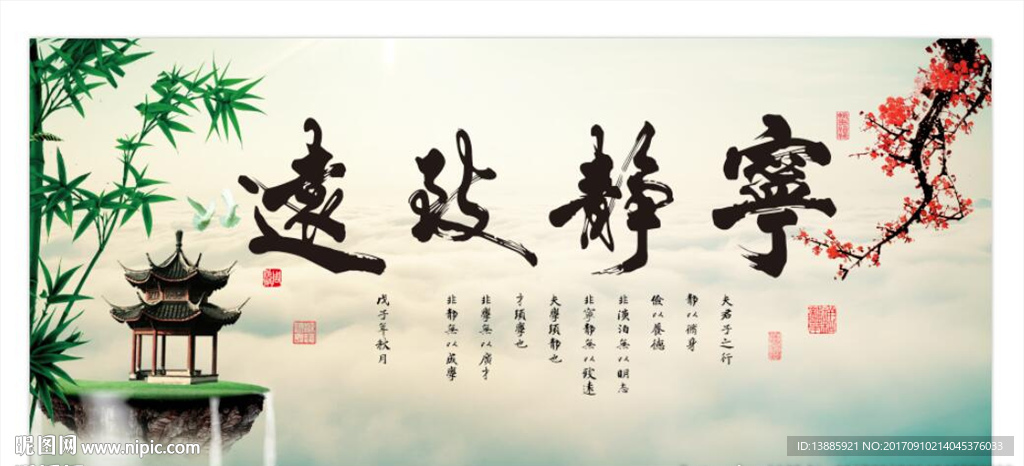 寧靜致遠
夫君子之行
靜以脩身
儉以養德
非澹泊無以明志
非寧靜無以致遠
夫學須靜也
才須學也
非學無以廣才
非靜無以成學
戊子年秋月
昵图网 www.nipic.com
ID:13885921 NO:20170910214045376033